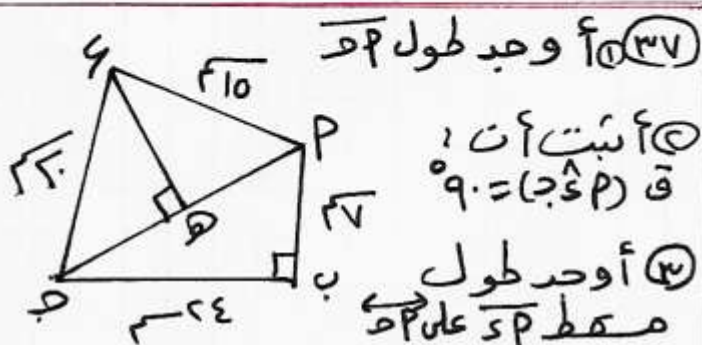 ٣٧ ① أوجد طول أحـ
② أثبت أن :
ق (أ ء̂ جـ) = ٩٠°
③ أوجد طول
مسقط أء على أحـ
ء
١٥م
أ
٢٠م
٧م
هـ
جـ
٢٤م
ب